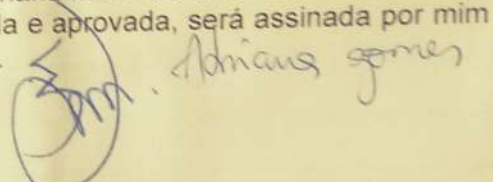 la e aprovada, será assinada por mim
Adriana gomes